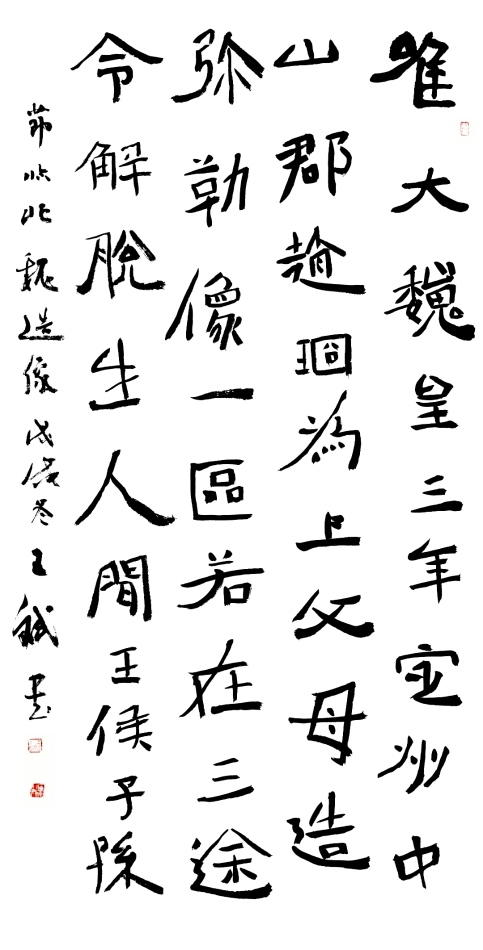 唯大魏皇三年定州中
山郡趙珚為上父母造
弥勒像一區若在三途
令解脫生人間王侯子孫
節临北魏造像戊戌冬王書